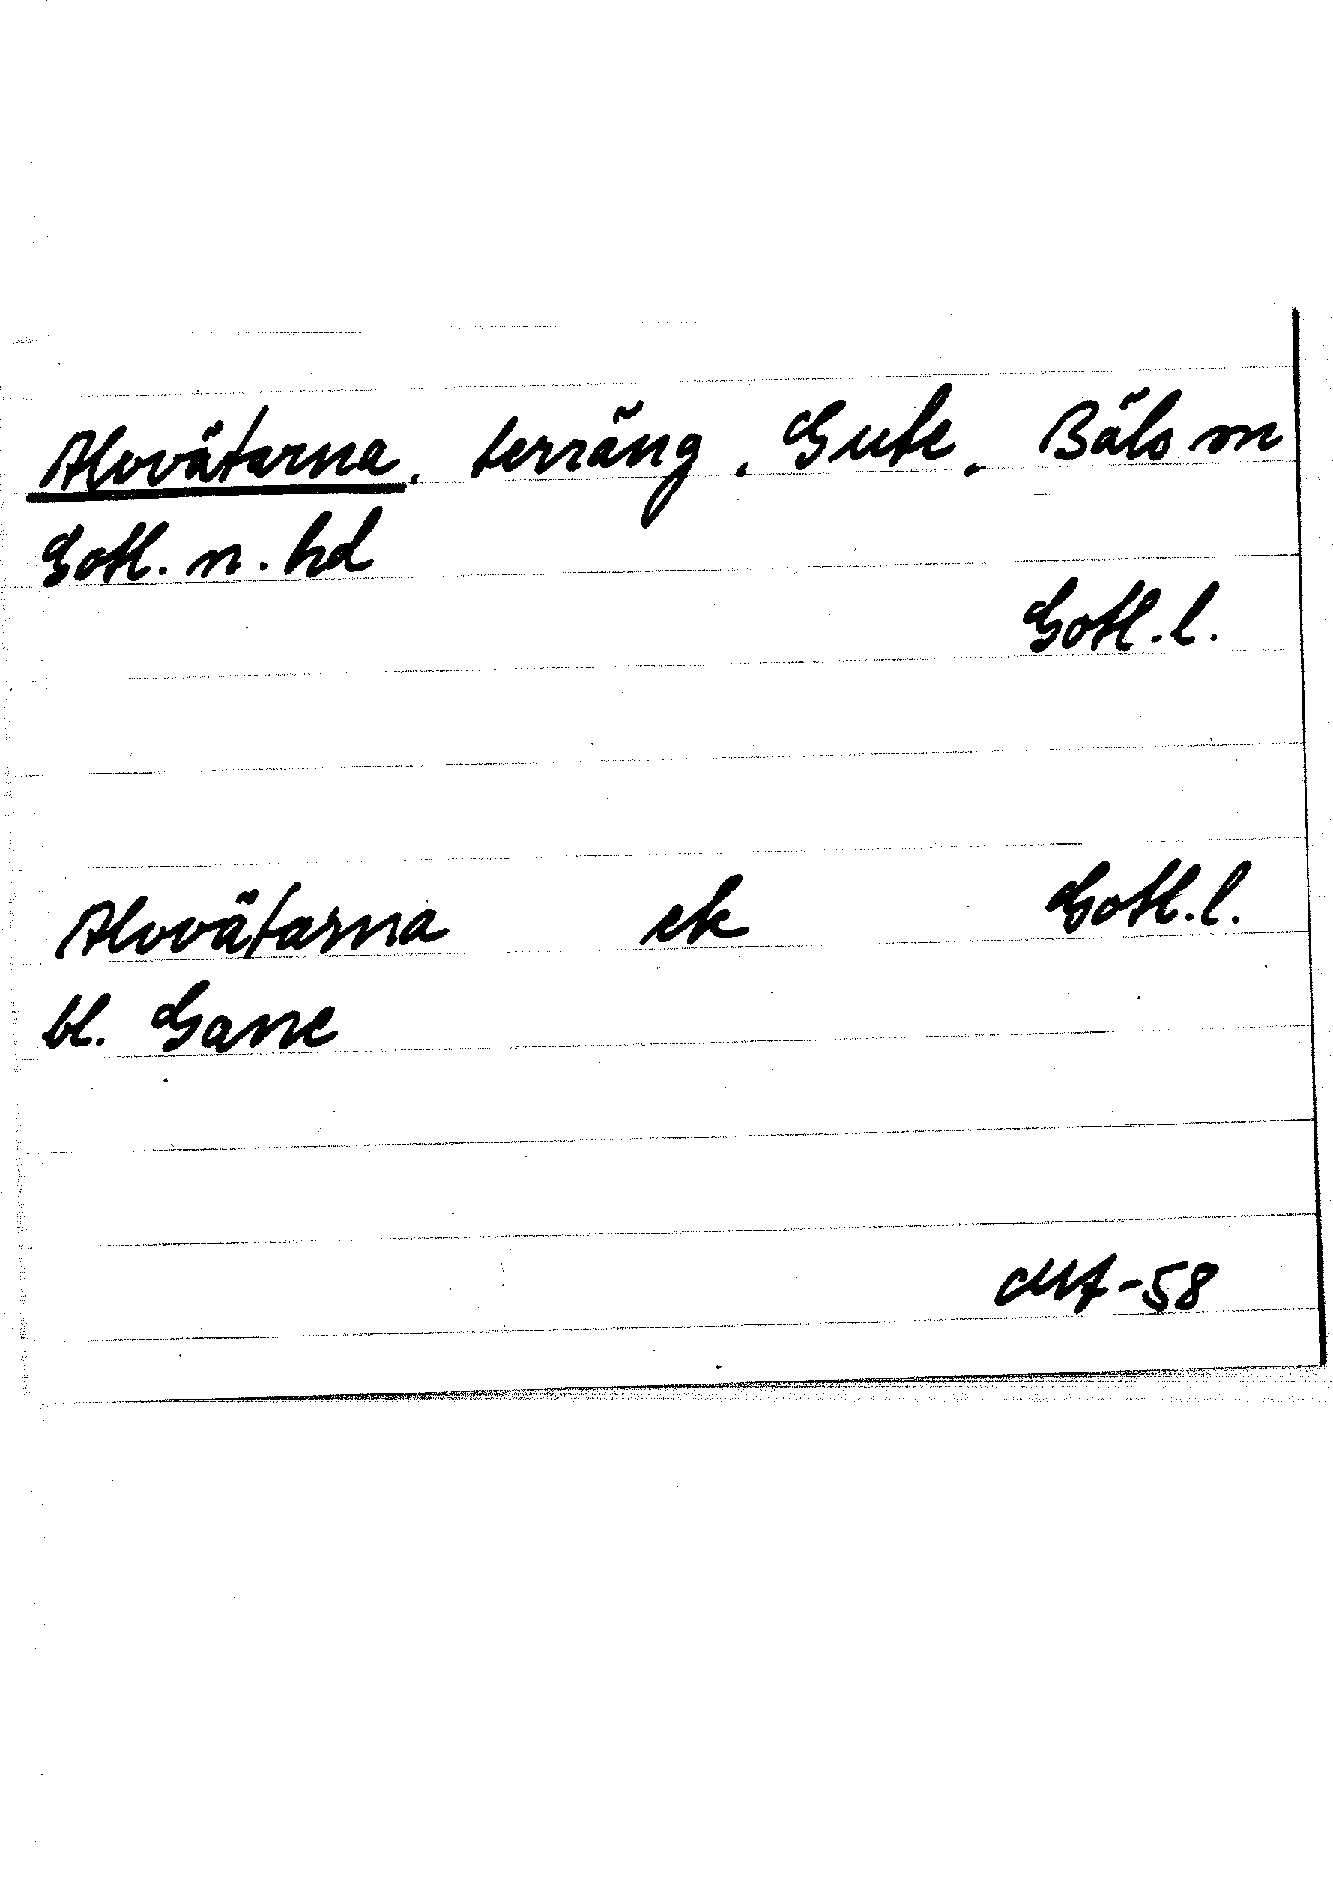 Alvvätarna. terräng. Gute. Bäls sn
Gotl. n. hd
Gotl. l.
Alvvätarna ek Gotl. l.
bl. Gane
-58